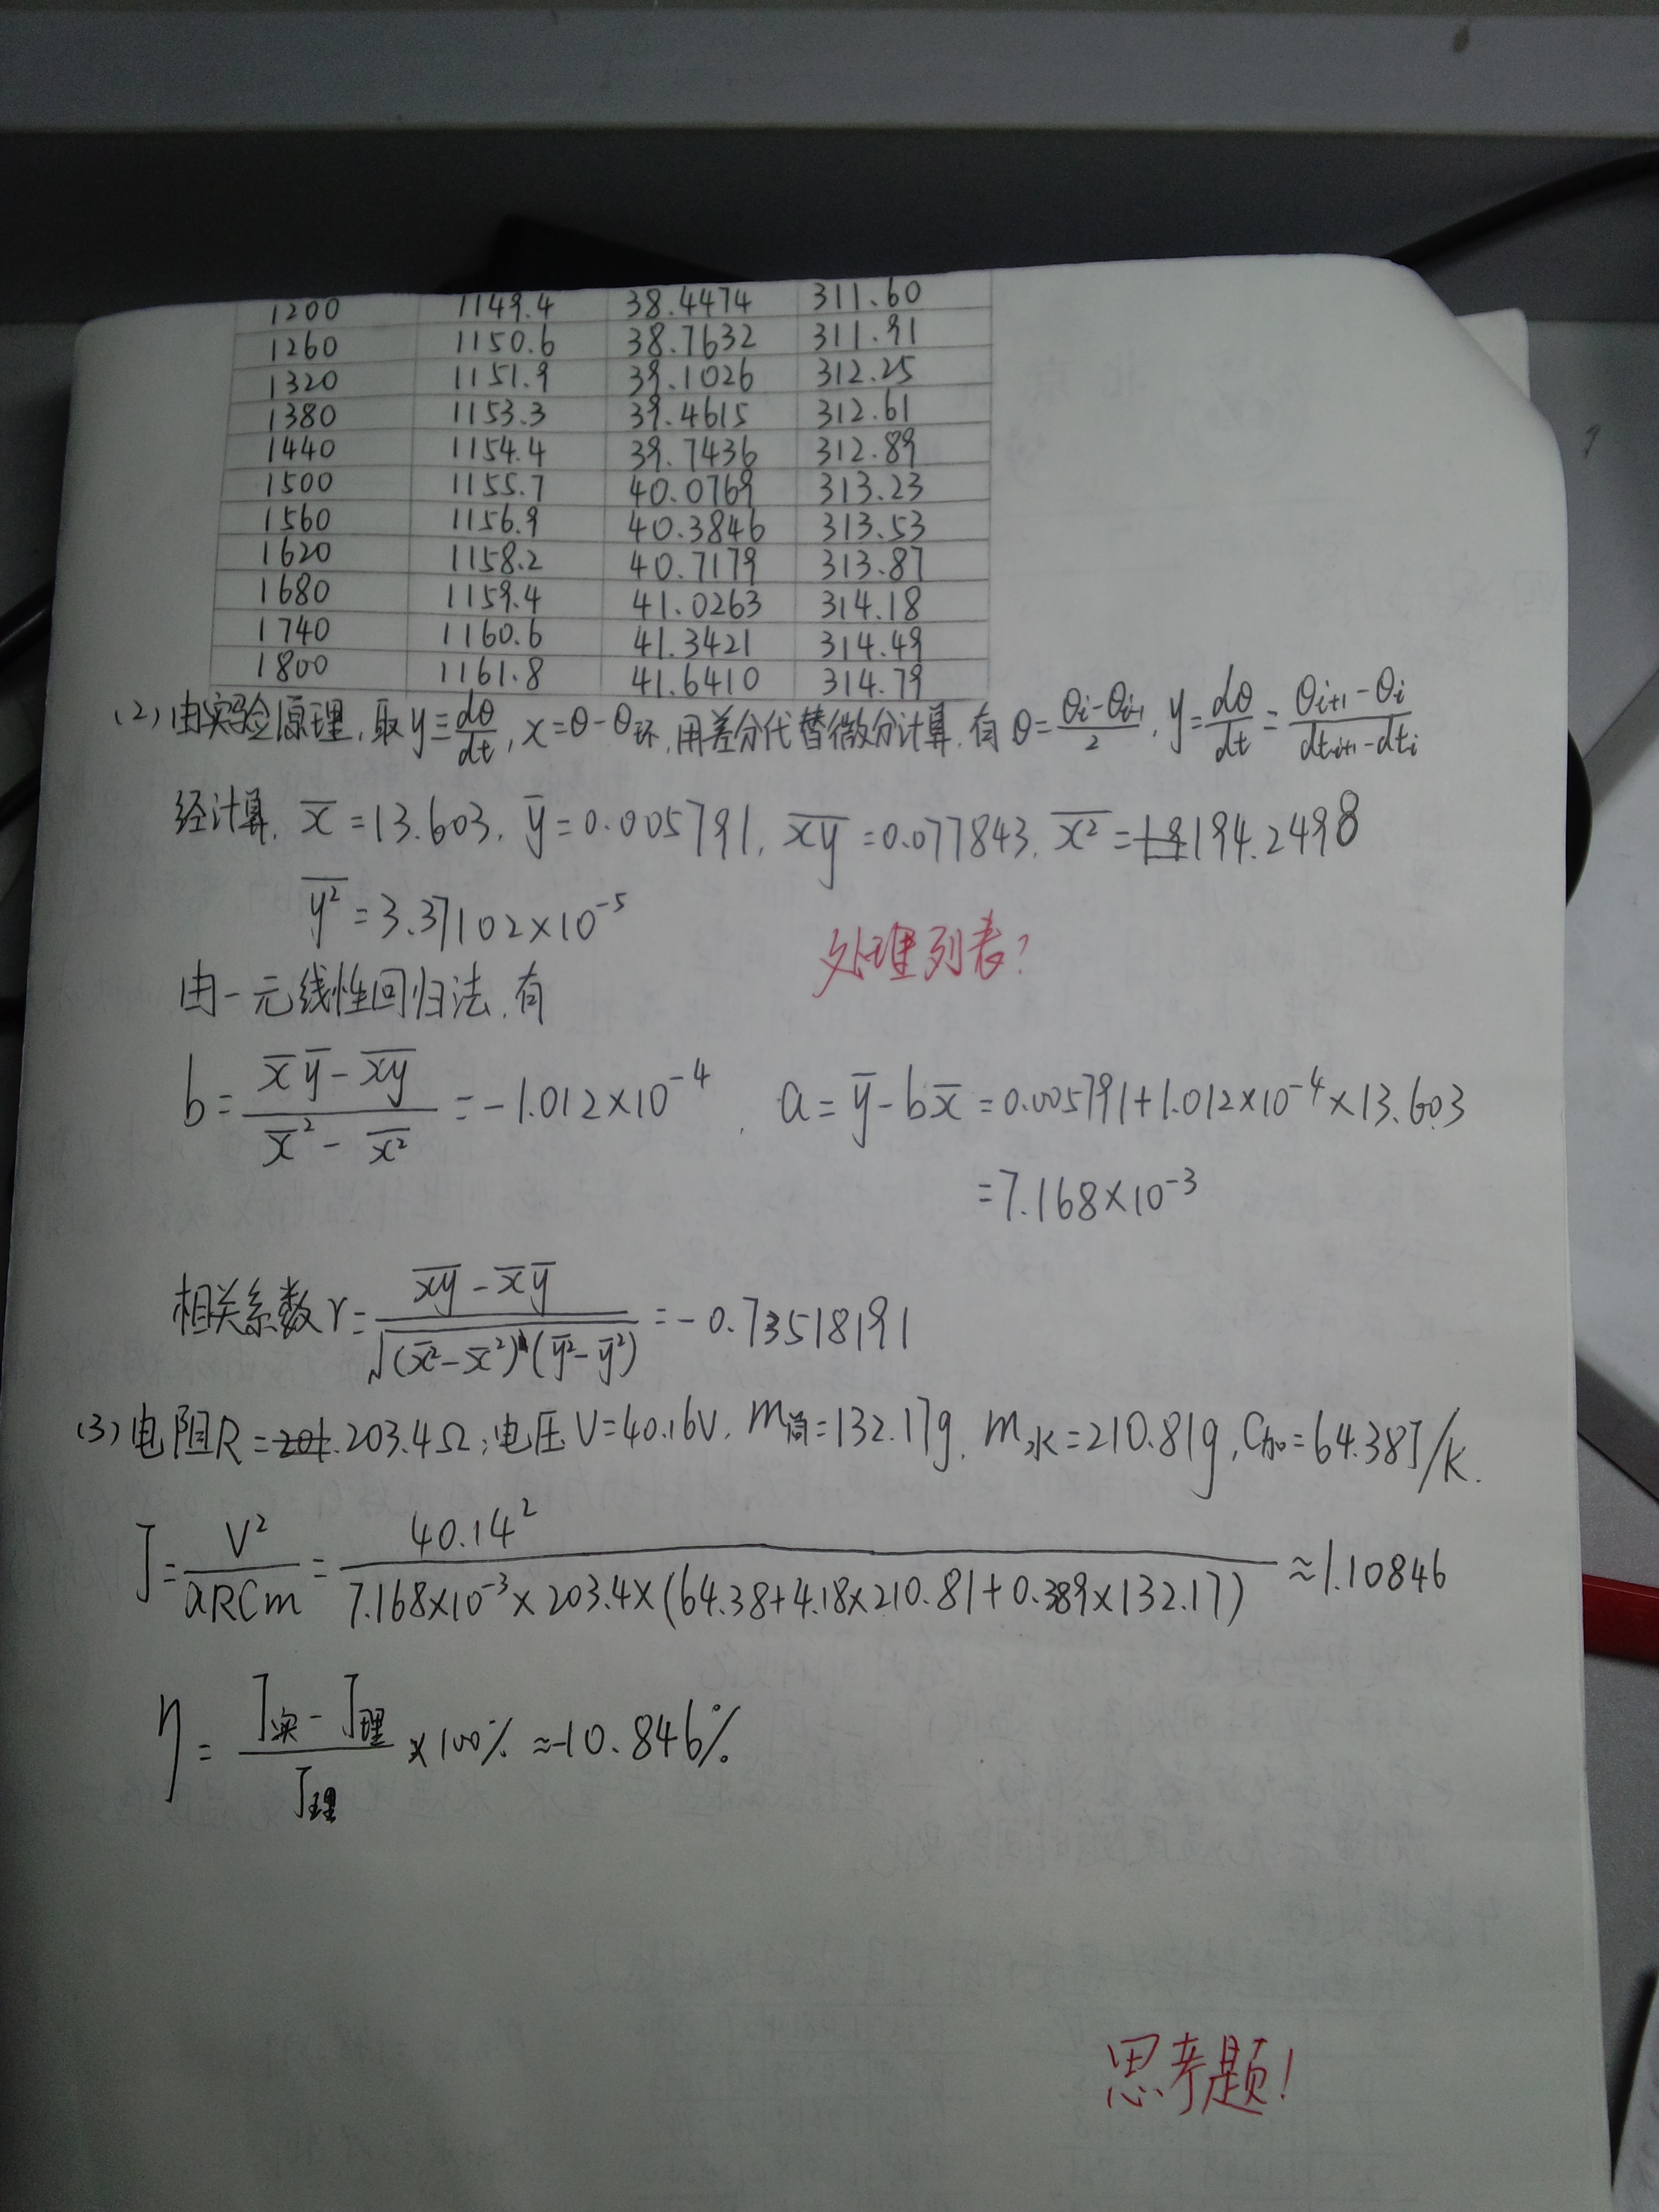 1200 1149.4 38.4474 311.60
1260 1150.6 38.7632 311.91
1320 1151.9 39.1026 312.25
1380 1153.3 39.4615 312.61
1440 1154.4 39.7436 312.89
1500 1155.7 40.0769 313.23
1560 1156.9 40.3846 313.53
1620 1158.2 40.7179 313.87
1680 1159.4 41.0263 314.18
1740 1160.6 41.3421 314.49
1800 1161.8 41.6410 314.79
(2) 由实验原理, 取 y≡dθ/dt, x=θ-θ环, 用差分代替微分计算, 有 θ=(θi-θi-1)/2, y=dθ/dt=(θi+1-θi)/(dti+1-dti)
经计算, x̄=13.603, ȳ=0.005791, x̅y̅=0.077843, x̅²̅=194.2498
y̅²̅=3.37102×10⁻⁵
处理列表?
由一元线性回归法, 有
b=(x̄ȳ-x̅y̅)/(x̄²-x̅²̅)=-1.012×10⁻⁴, a=ȳ-bx̄=0.005791+1.012×10⁻⁴×13.603
=7.168×10⁻³
相关系数 r=(x̅y̅-x̄ȳ)/√((x̅²̅-x̄²)(y̅²̅-ȳ²))=-0.73518191
(3) 电阻R=203.4Ω; 电压V=40.16V, m筒=132.17g, m水=210.81g, C加=64.38J/K.
J=V²/(aRCm)=40.14²/(7.168×10⁻³×203.4×(64.38+4.18×210.81+0.389×132.17))≈1.10846
η=(J实-J理)/J理×100%≈-10.846%
思考题!